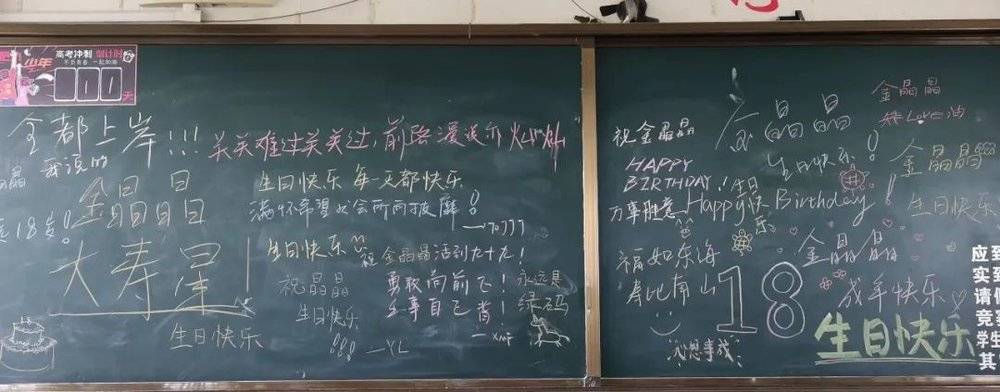 少年
高考冲刺 倒计时
天
全都上岸!!!
我说的
关关难过关关过,前路漫漫亦灿灿
金晶晶
18岁!
大寿星!
生日快乐
生日快乐 每一天都快乐
满怀希望 就会所向披靡!
生日快乐
祝金晶晶活到九十九!
祝晶晶
生日快乐
!!! —YL
勇敢向前飞!
永远是
绿码
祝金晶晶
HAPPY
BIRTHDAY!
万事胜意
生日
快乐
Happy Birthday!
福如东海
寿比南山
心想事成
金晶晶
生日快乐!
金晶晶
金晶晶
生日快乐
金晶晶
成年快乐
18
生日快乐
应到
实
请
竞
学生
其